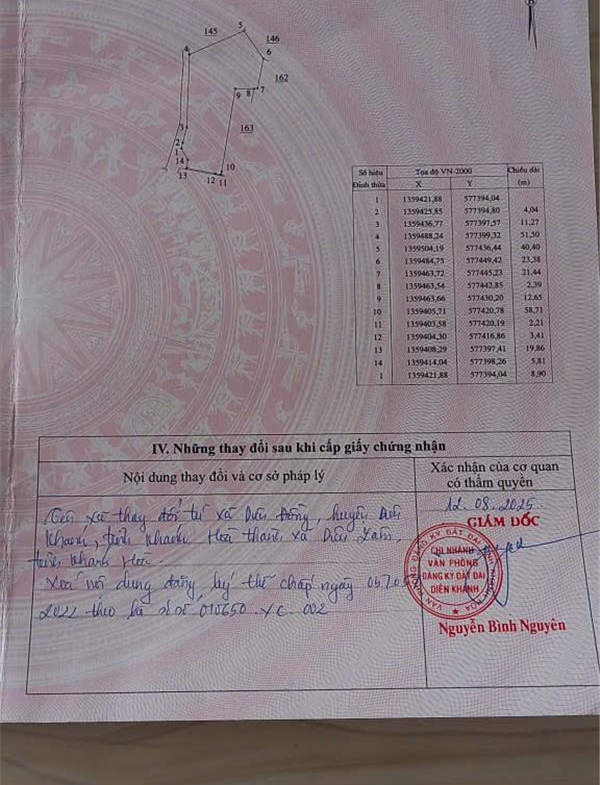 145
5
146
4
6
162
9
8
7
163
3
2
1
14
13
12
10
11
Số hiệu Đỉnh thửa Tọa độ VN-2000 Chiều dài (m)
X Y
1 1359421,88 577394,04
2 1359425,85 577394,80 4,04
3 1359436,77 577397,57 11,27
4 1359488,24 577399,32 51,50
5 1359504,19 577436,44 40,40
6 1359484,75 577449,42 23,38
7 1359463,72 577445,23 21,44
8 1359463,54 577442,85 2,39
9 1359463,66 577430,20 12,65
10 1359405,71 577420,78 58,71
11 1359403,58 577420,19 2,21
12 1359404,30 577416,86 3,41
13 1359408,29 577397,41 19,86
14 1359414,04 577398,26 5,81
1 1359421,88 577394,04 8,90
IV. Những thay đổi sau khi cấp giấy chứng nhận
Nội dung thay đổi và cơ sở pháp lý
Xác nhận của cơ quan
có thẩm quyền
Tên xã thay đổi từ xã Diên Đồng, huyện Diên
Khánh, tỉnh Khánh Hoà thành xã Diên Lâm,
tỉnh Khánh Hoà.
Xoá nội dung đăng ký thế chấp ngày
2022 theo hồ sơ số 010650.XC.002
12.08.2025
GIÁM ĐỐC
CHI NHÁNH
VĂN PHÒNG
ĐĂNG KÝ ĐẤT ĐAI
DIÊN KHÁNH
VĂN PHÒNG ĐĂNG KÝ ĐẤT ĐAI TỈNH KHÁNH HÒA
Nguyễn Bình Nguyên